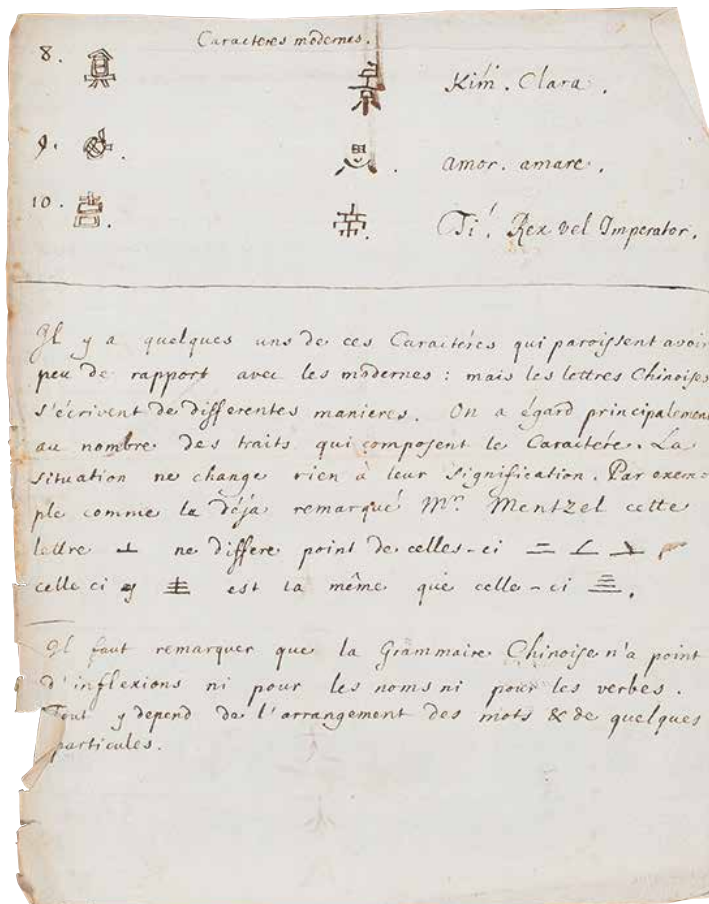 Caracteres modernes.
8. 景 Kím. Clara.
9. 思. amor. amare.
10. 帝. Tí. Rex vel Imperator.
Il y a quelques uns de ces Caractéres qui paroissent avoir
peu de rapport avec les modernes : mais les lettres Chinoises
s'écrivent de differentes manieres. On a égard principalement
au nombre des traits qui composent le Caractére. La
situation ne change rien à leur signification. Par exem-
ple comme la déja remarqué Mr. Mentzel cette
lettre ㅗ ne differe point de celles-ci 二 ㄥ
celle ci est la même que celle-ci 亖.
Il faut remarquer que la Grammaire Chinoise n'a point
d'inflexions ni pour les noms ni pour les verbes.
Tout y depend de l'arrangement des mots & de quelques
particules.